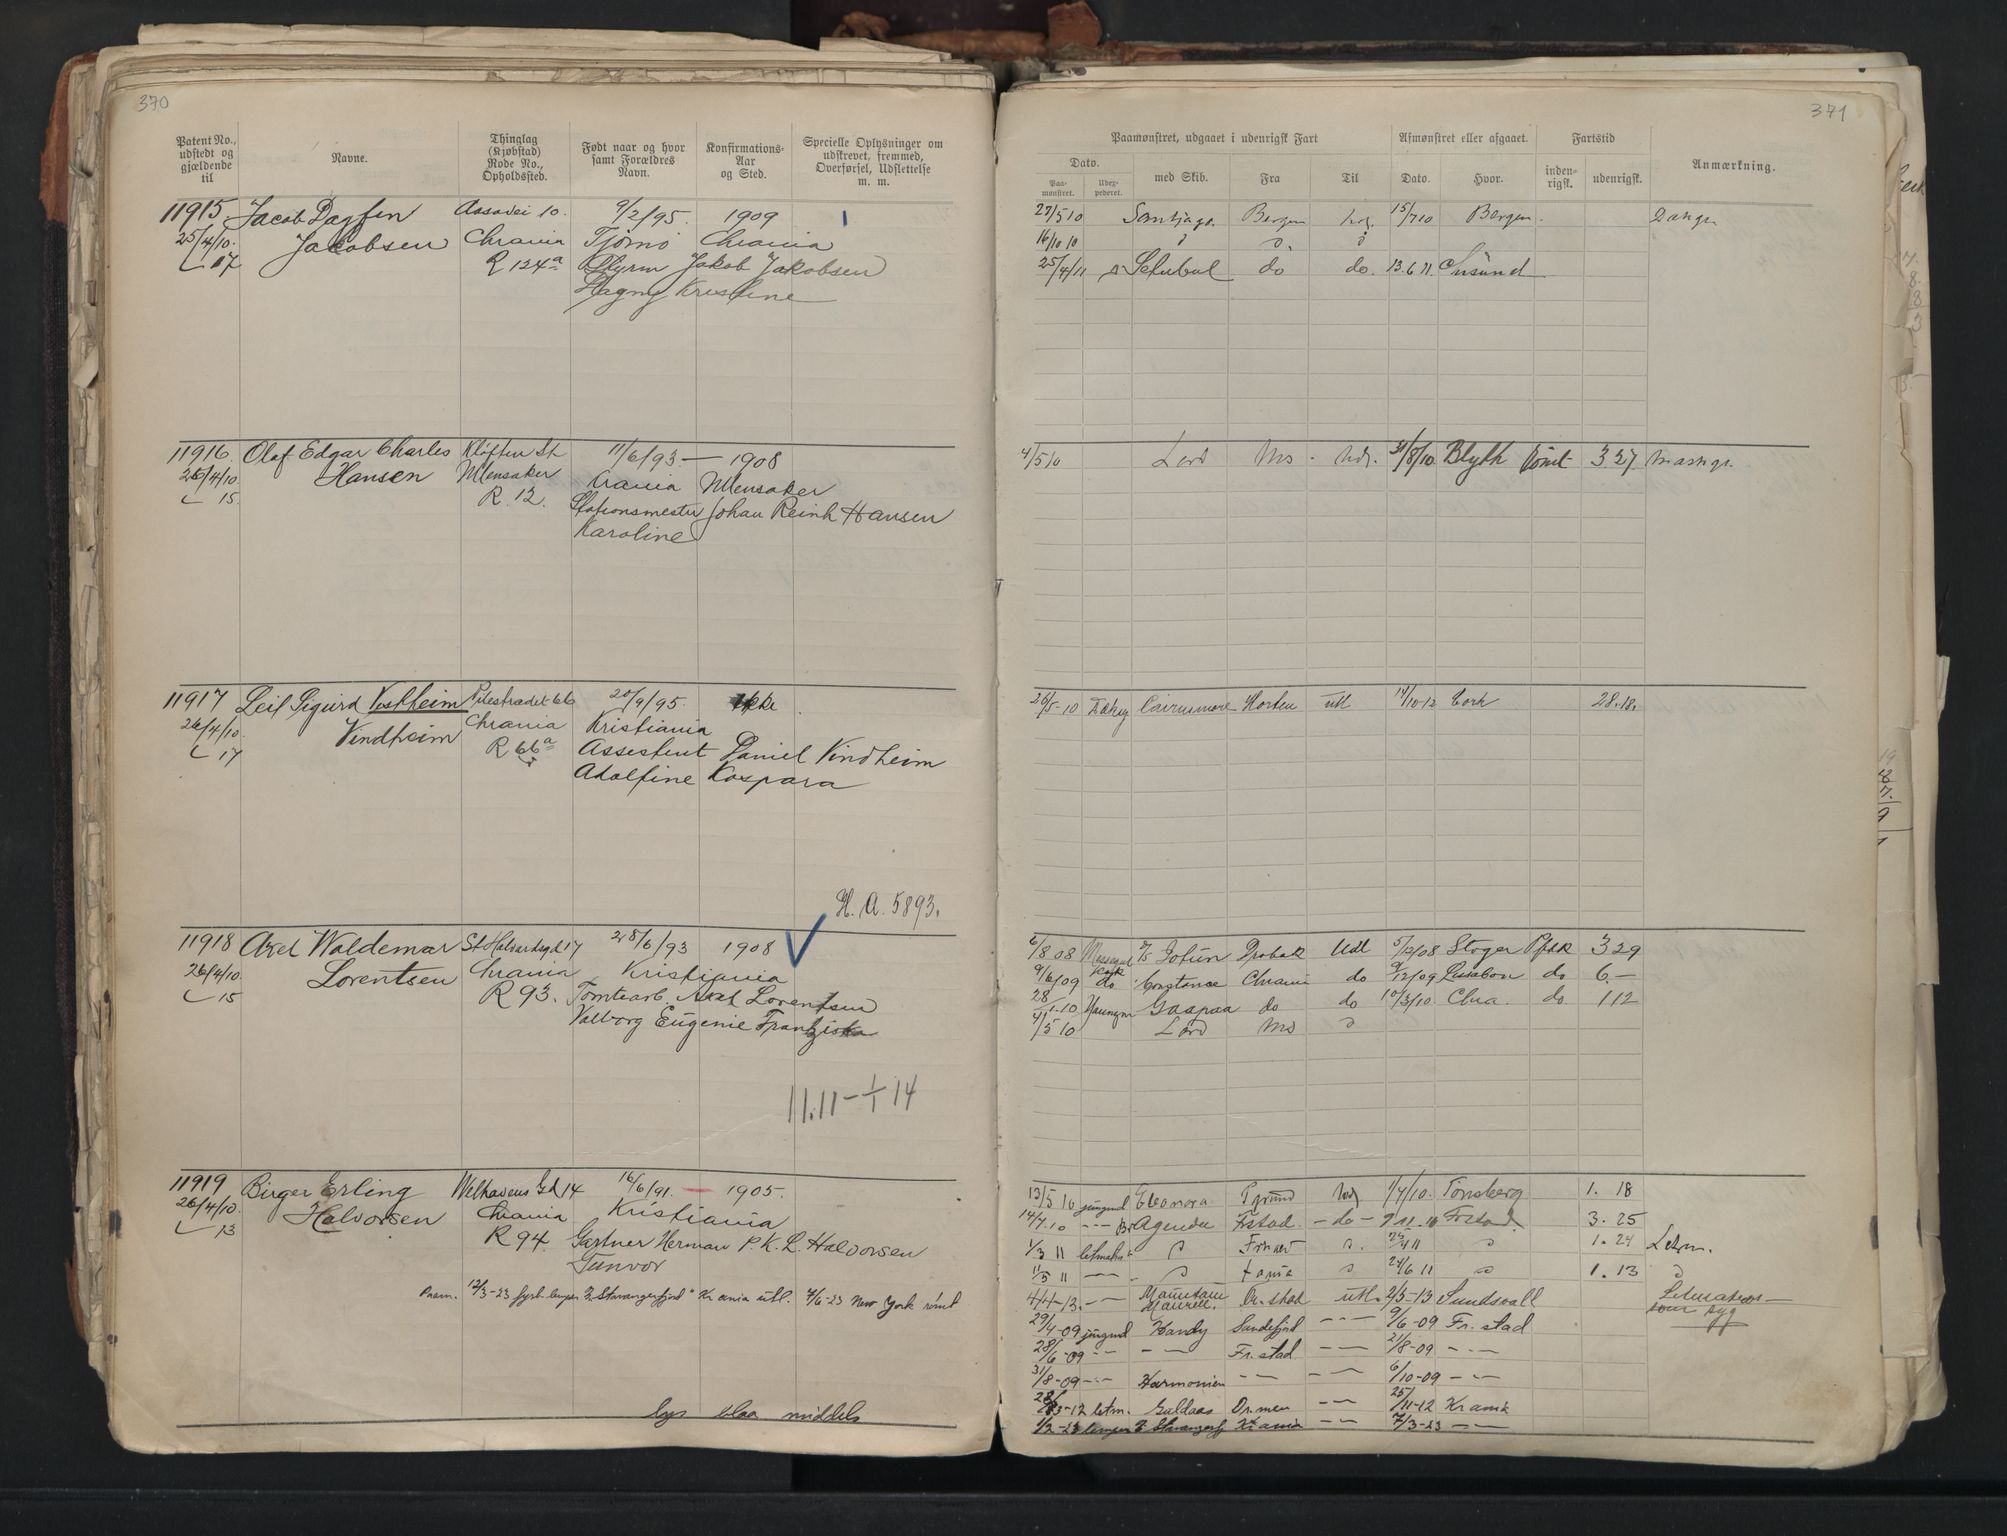 370
Patent No., udstedt og gjældende til
Navne.
Thinglag (Kjøbstad) Rode No., Opholdssted.
Født naar og hvor samt Forældres Navn.
Konfirmations-Aar og Sted.
Specielle Oplysninger om udskrevet, fremmed, Overførsel, Udslettelse m. m.
11915 Jacob Dagfin 9/2/95. 1909
25/4/10. Jacobsen Chrania Tjømø Chrania
R 124a Styrm Jakob Jakobsen
Dagny Kristine
11916. Olaf Edgar Charles Kløften St 11/6/93 — 1908
26/4/10. Hansen Ullensaker Chrania Ullensaker
15. R. 12. Stationsmester Johan Reinh Hansen
Karoline
11917 Leif Sigurd Vestheim Pilestrædet 66 20/9/95. ikke
26/4/10. Vindheim Chrania Kristiania
17 R 66a Assestent Daniel Vindheim
Adolfine Kaspara
H. A. 5893.
11918 Axel Waldemar St Halvardsgd 17 28/6/93 1908
26/4/10. Lorentsen Chrania Kristiania
15 R 93. Tomtearb. Axel Lorentsen
Valborg Eugenie Franziska
11.11 – 1/1 14
11919 Birger Erling Welhavens Gd 14 16/6/91. — 1905.
26/4/10. Halvorsen Chrania Kristiania
13 R 94. Gartner Herman P. K. L. Halvorsen
Gunvor
12/3-23 fyrb. lemper Stavangerfjord" Kr ania utl. 4/6-23 New York rømt
lys blaa middels
371
Paamønstret, udgaaet i udenrigsk Fart
Afmønstret eller afgaaet.
Fartstid
Anmærkning.
Dato.
Paa-mønstret.
Udex-pederet.
med Skib.
Fra
Til
Dato.
Hvor.
inden-rigsk.
udenrigsk.
27/5 10 Bergen Udg. 15/7 10 Bergen.
16/10 10
25/4/11 Setubal do do. 13.6 11.
4/5 10 Lord Mos Udg. 31/8/10 Blyth Rømt 3 27
26/5-10 Horten utl 14/10-12 Cork 28.18.
6/8 08 Jotun Drobak Udl 5/12/08 3 29
9/6/09 do Constance Chrania do 9/12/09 Lissabon do 6 —
28/1-10 do do. 10/3/10. Chra. do. 1 12
4/5 10 Lord Mos
13/5 10 jungmd Eleonora Udg 1/7/10. Tønsberg 1. 18
14/7.10 Agenda Frstad. — do — 9 11. 10 Frstad. 3. 25
1/3 11 letmatr 1. 24 Letm.
11/5 11 24/6 11 1. 13
4/4-13. — — utl. 2/5-13 Sundsvall Letmatros som syg
29/4-09 jungmd Handy Sandefjord — — 9/6-09 Fr. stad
28/6-09 — — — — Fr. stad — — 21/8-09 — — —
31/8-09 — — Harmonien — — — — 6/10-09 — — —
letm. Guldaas Drmen — — 25/11-12 Krania
1/2-23 lemper Stavangerfj Krania — — 7/3-23 — —